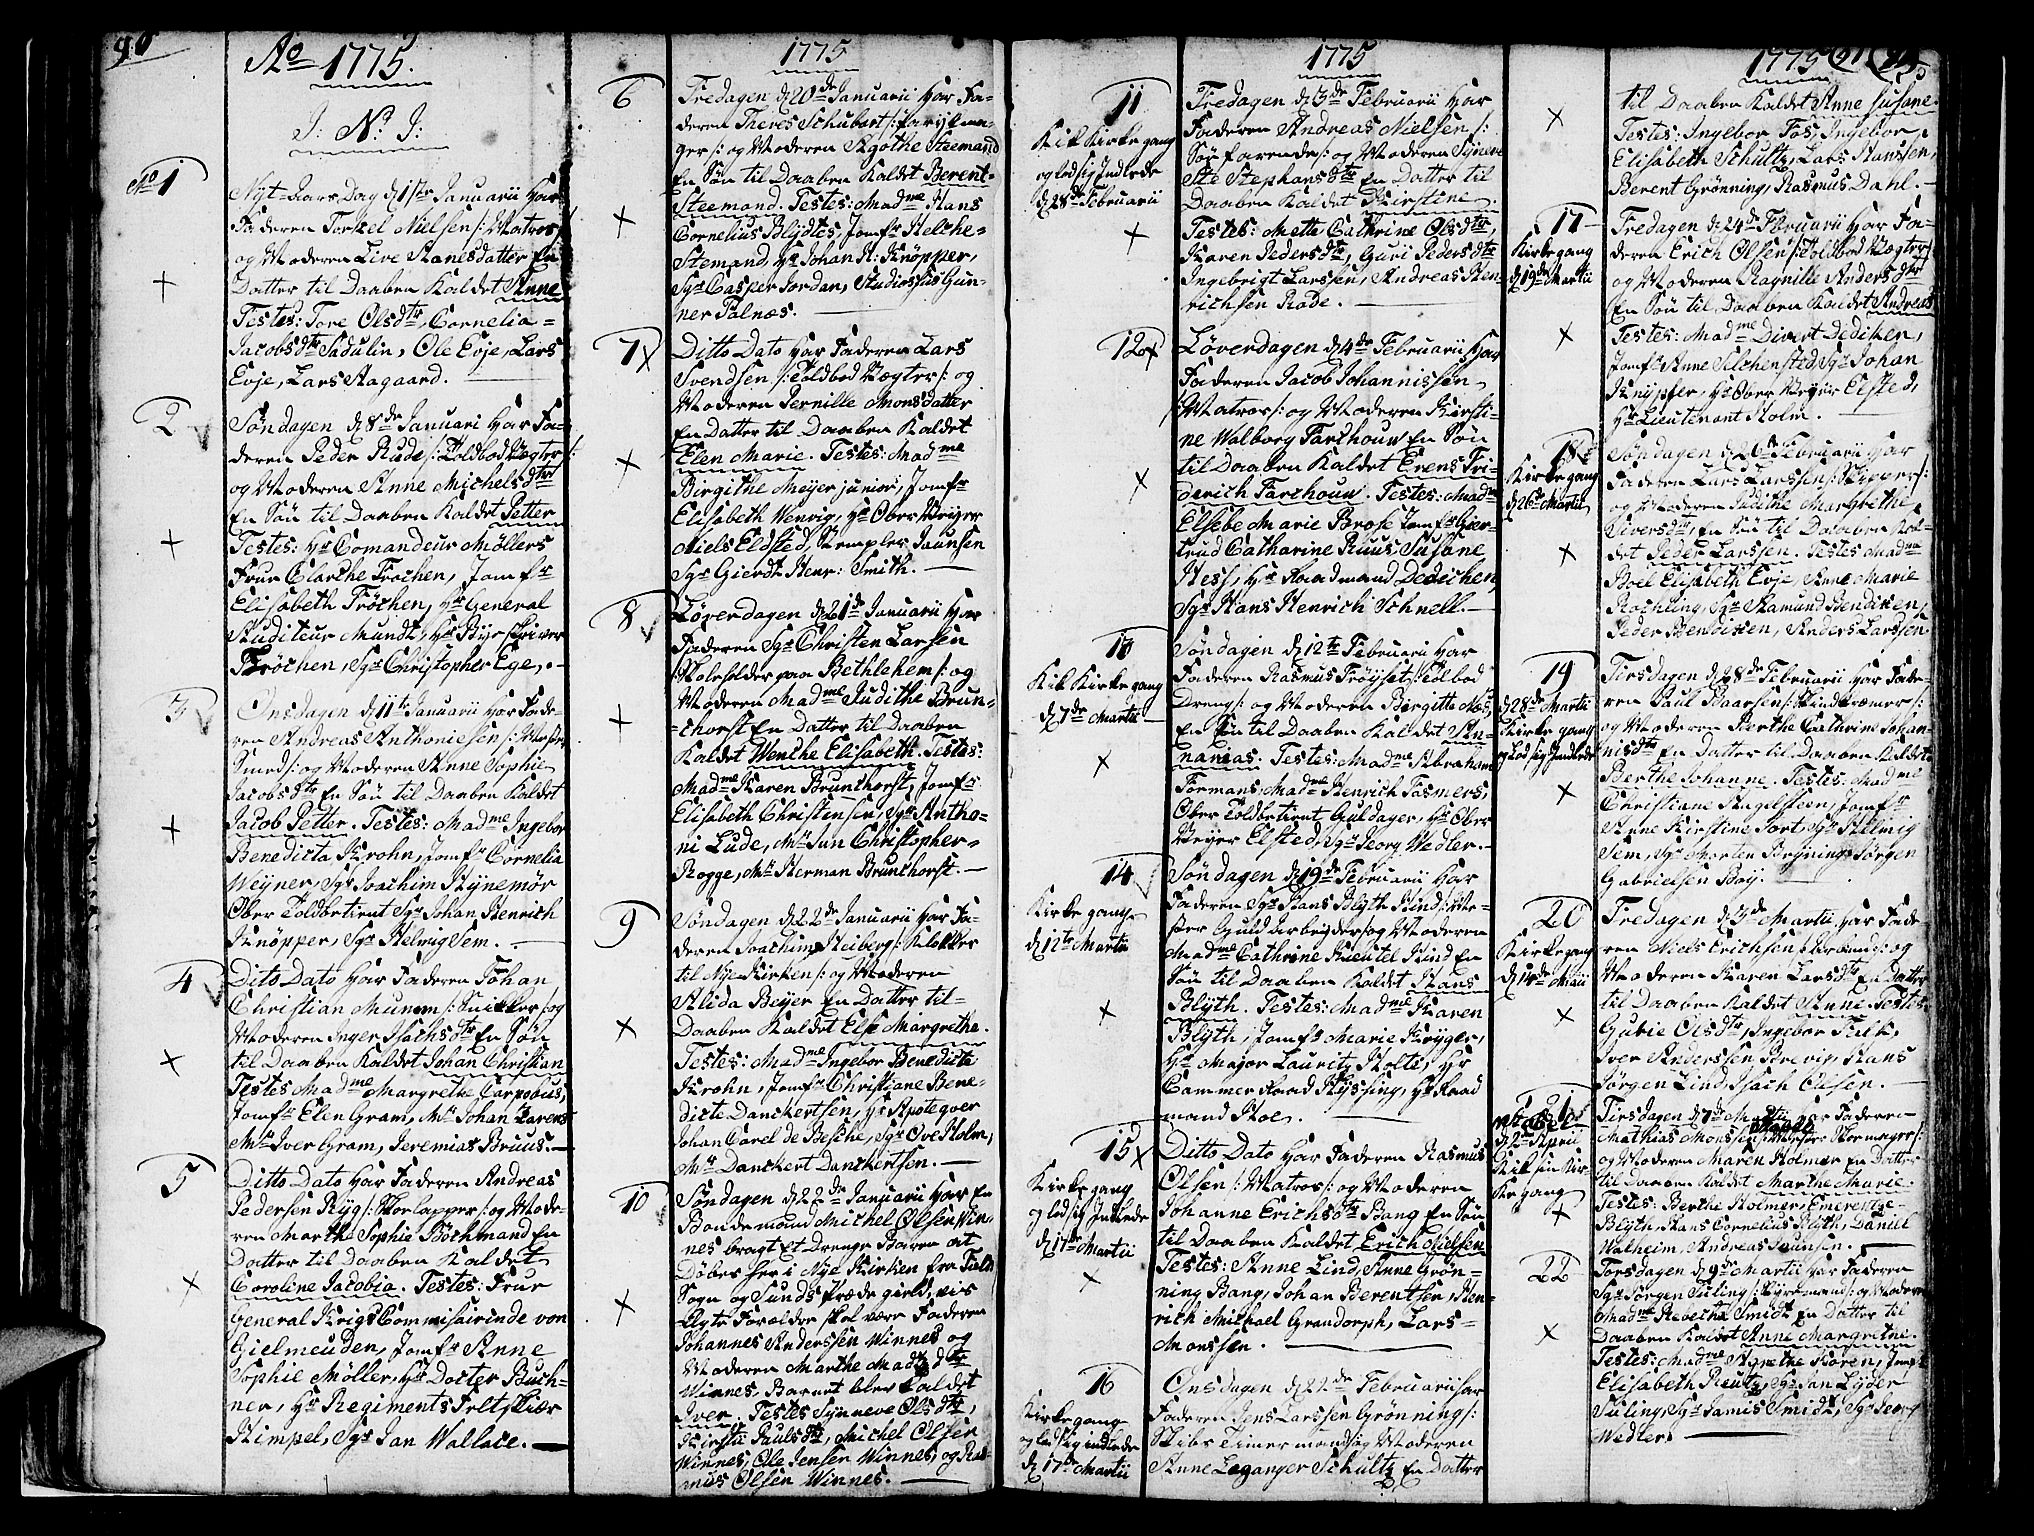 90
Ao 1775.
J: N: J:
No 1
Nyt-Aars Dag d 1ste Januarii Har
Faderen Torkel Nielsen /: Matros /
og Moderen Live Hansdatter En
Datter til Daaben Kaldet Anne
Testes: Tore Olsdtr, Cornelia
Jacobsdtr Sadulin, Ole Evje, Lars
Evje, Lars Aagaard.
2
Søndagen d 8de Januari Har Fa-
deren Peder Rude /: Toldbod Vægter /:
og Moderen Anne Michelsdtr
En Søn til Daaben Kaldet Petter
Testes: Hr Comandeur Møllers
Frue Clarche Frøchen, Jomfr
Elisabeth Frøchen, Hr General
Auditeur Mundt, Hr Byeskriver
Frøchen, Sgr Christopher Ege.
3
Onsdagen d 11te Januarii Har Fade-
ren Andreas Anthoniesen /: Mester
Smed /: og Moderen Anne Sophie
Jacobsdtr En Søn til Daaben Kaldet
Jacob Petter. Testes: Madme Ingebor
Benedicta Krohn, Jomfr Cornelia
Weyner, Sgr Joachim Stynemør
Ober Toldbetient Sgr Johan Henrich
Knøpper, Sgr Helvig Sem.
4
Dito Dato Har Faderen Johan
Christian Munm /: Snitker /: og
Moderen Inger Isachsdtr En Søn
til Daaben Kaldet Johan Christian
Testes Madme Margrethe Carpobus,
Jomfr Elen Gram, Mr Johan Larens
Mr Iver Gram, Jeremias Bruus.
5
Ditto Dato Har Faderen Andreas
Pedersen Ryg /: Skorlapper /: og Mode-
ren Marthe Sophie Böchmand En
Datter til Daaben Kaldet
Caroline Jacobia. Testes: Frue
General Krigs Commisairinde von
Gielmeuden, Jomfr Anne
Sophie Möller, Hr Docter Buch-
ner, Hr Regiments Feltskiær
Kimpel, Sgr Jan Wallace.
1775
6
Fredagen d 20de Januarii Har Fa-
deren Theres Schubart /: Parykma-
ger /: og Moderen Agothe Steemand
En Søn til Daaben Kaldet Berent
Steemand. Testes: Madme Hans
Cornelius Blydtes, Jomfr Helche
Stemand, Hr Johan H: Knøpper,
Sgr Casper Jordan, Studiosus Gun-
ner Falnæs.
7
Ditto Dato Har Faderen Lars
Svendsen /: Toldbod Vægter /: og
Moderen Pernille Monsdatter
En Datter til Daaben Kaldet
Elen Marie. Testes: Madme
Birgithe Meyer junior, Jomfr
Elisabeth Wenvig, Hr Ober Veyer
Niels Eldsted, Stempler Jaunsen
Sgr Gierdt Henr: Smith.
8
Løverdagen d 21de Januarii Har
Faderen Sgr Christen Larsen
/: Skoleholder paa Bethlehem /: og
Moderen Madme Judithe Brun-
chorst En Datter til Daaben
Kaldet Wenche Elisabeth. Testes:
Madme Karen Brunchorst, Jomfr
Elisabeth Christensen, Sgr Antho-
ni Lude, Mr Jun Christopher
Rogge, Mr Herman Brunchorst.
9
Søndagen d 22de Januarii Har Fa-
deren Joachim Heiberg /: Klokker
til Nye Kirken /: og Moderen
Alida Beyer En Datter til
Daaben Kaldet Else Margrethe.
Testes: Madme Ingebor Benedicta
Krohn, Jomfr Christiane Bene-
dicte Danckertsen, Hr Apoteqver
Johan Carel de Besche, Sgr Ove Holm,
Mr Danckert Danckertsen.
10
Søndagen d 22de Januarii Har En
Bondemand Michel Olsen Win-
nes bragt Et Drenge Baren at
Døbes her i Nye Kirken fra Field
Sogn og Sunds Præde gield, vis
Ægte Forældre skal være Faderen
Johannes Anderssen Winnes og
Moderen Marthe Madtzdtr
Winnes, Barnet blev Kaldet
Iver. Testes Synneve Olsdtr,
Kirstii Paulsdtr, Michel Olsen
Winnes, Ole Jensen Winnes, og Ras-
mus Olsen Winnes.
1775
11
Kik Kirkegang
og lod sig Indlede
d 28de Februarii
Fredagen d 3de Februarii Har
Faderen Andreas Nielsen /:
Søefarende /: og Moderen Syneve
Ste Stephansdtr En Datter til
Daaben Kaldet Kirstine.
Testes: Mette Cathrine Olsdtr,
Karen Pedersdtr, Guri Pedersdtr
Ingebrigt Larssen, Andreas Hen-
richsen Rode.
12
Løverdagen d 4de Februarii Har
Faderen Jacob Johannissen
/: Matros /: og Moderen Kirsti-
ne Walborg Farchouw En Søn
til Daaben Kaldet Erens Fri-
derich Farchouw. Testes: Madme
Elsebe Marie Brose Jomfr Gier-
trud Catharine Ruus, Susane
Hess, Hr Raadmand Dedichen,
Sgr Hans Henrich Schnell.
13
Kik Kirke gang
d 7de Martii
Søndagen d 12te Februarii Har
Faderen Rasmus Frøyset /: Tolbod
Dreng /: og Moderen Birgitte Næs,
En Søn til Daaben Kaldet An-
nanias. Testes: Madme Abraham
Formans, Madme Henrich Fasmers,
Ober Toldbetient Guldager, Hr Ober
Veyer Elsted, Sgr Georg Wedler.
14
Kirke gang
d 12te Martii
Søndagen d 19de Februarii Har
Faderen Sgr Hans Blyth Kind /: Me-
ster Guld Arbeyder /: og Moderen
Madme Cathrine Kreutel Kind En
Søn til Daaben Kaldet Hans
Blyth. Testes: Madme Karen
Blyth, Jomfr Marie Kryger,
Hr Major Lauritz Holte, Hr
Cammer Raad Hyssing, Hr Raad
mand Stoe.
15
Kirke gang
og lod sig Indlede
d 17de Martii
Ditto Dato Har Faderen Rasmus
Olsen /: Matros /: og Moderen
Johanne Erichsdtr Bang En Søn
til Daaben Kaldet Erich Nielsen
Testes: Anne Lind, Anne Grøn-
ning Bang, Johan Berentsen, Hen-
rich Michael Grandorph, Lars
Monssen.
16
Kirkegang
og lod sig indlede
d 17de Martii
Onsdagen d 22de Februarii har
Faderen Jens Larssen Grønning /:
Skibs Timermand /: og Moderen
Anne Leganger Schultz En Datter
1775
91
til Daaben Kaldet Anne Susane.
Testes: Ingebor Fos, Ingebor
Elisabeth Schultz, Lars Hanssen,
Berent Grønning, Rasmus Dahl.
17
Kirke gang
d 19de Martii
Fredagen d 24de Februarii Har Fa-
deren Erich Olsen /: Toldbod Vægter /:
og Moderen Ragnille Andersdtr
En Søn til Daaben Kaldet Andreas
Testes: Madme Divert Dediken,
Jomfr Anne Silchensted, Sgr Johan
Knypfer, Hr Ober Veyer Elsted,
Hr Lieutenant Holm.
18
Kirke gang
d 26de Martii
Søndagen d 26de Februarii Har
Faderen Lars Larssen /: Skipper /:
og Moderen Judithe Margrethe
Siversdtr, En Søn til Daaben Kal-
det Peder Larssen. Testes Madme
Boel Elisabeth Evje, Anne Marie
Rochling, Sgr Aamund Bendixen,
Peder Bendixen, Anders Larssen
19
d 28de Martii
Kirke gang
og lod sig Indlede
Tirsdagen d 28de Februarii Har Fade-
ren Paul Baarsen /: Kindkræmer /:
og Moderen Berthe Cathrine Johan-
nisdtr En Datter til Daaben Kaldet
Berthe Johanne. Testes: Madme
Christiane Angelsteen, Jomfr
Anne Kirstine Fort, Sgr Helvig
Sem, Sgr Morten Bryning, Jørgen
Gabrielsen Bøy.
20
Kirke gang
d 14de Maii
Fredagen d 3de Martii Har Fade-
ren Niels Erichsen /: og
Moderen Karen Larsdtr En Datter
til Daaben Kaldet Anne. Testes
Gubie Olsdtr, Ingebor Falk,
Iver Anderssen Brevig, Hans
Jørgen Lind, Isach Olsen.
21
d 2den April
Kik sin Kir-
ke gang
Tirsdagen d 7de Martii Har Faderen
Mathias Monssen /: Mester Skomager /:
og Moderen Maren Holmer En Datter
til Daaben Kaldet Marthe Marie.
Testes: Berthe Holmer, Emerentze
Blyth, Hans Cornelius Blyth, Daniel
Walheim, Andreas Jaunsen.
22
Torsdagen d 9de Martii Har Faderen
Sgr Jørgen Suling /: og Moderen
Madme Rebecka Smidt En Datter til
Daaben Kaldet Anne Margrethe.
Testes: Madme Agnethe Koren, Jomfr
Elisabeth Reutz, Sgr Jan Lyder
Suling, Sgr Jamis Smidt, Sgr Georg
Wedler.